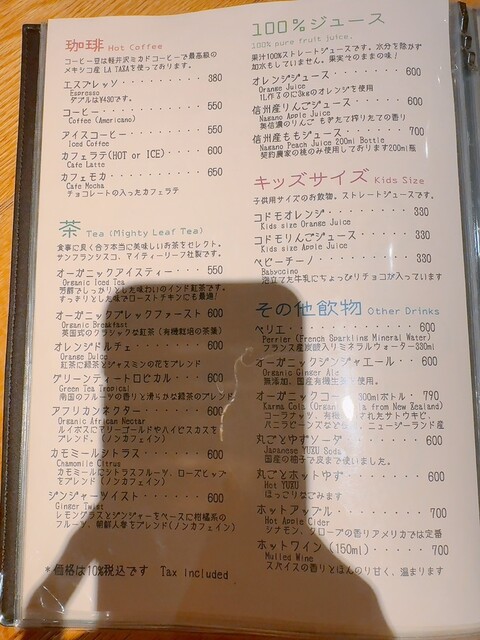 珈琲 Hot Coffee
コーヒー豆は軽井沢ミカドコーヒーで最高級の
メキシコ産 LA TAZAを使っております。
エスプレッソ 380
Espresso
ダブルは¥430です。
コーヒー 550
Coffee (Americano)
アイスコーヒー 550
Iced Coffee
カフェラテ(HOT or ICE) 600
Cafe Latte
カフェモカ 650
Cafe Mocha
チョコレートの入ったカフェラテ
茶 Tea (Mighty Leaf Tea)
食事に良く合う本当に美味しいお茶をセレクト。
サンフランシスコ、マイティーリーフ社製です。
オーガニックアイスティー 550
Organic Iced Tea
芳醇でしっかりとした味わいのインド紅茶です。
すっきりとした味でローストチキンにも最適!
オーガニックブレックファースト 600
Organic Breakfast
英国式のクラシックな紅茶(有機栽培の茶葉)
オレンジドルチェ 600
Orange Dulce
紅茶に緑茶とジャスミンの花をブレンド
グリーンティートロピカル 600
Green Tea Tropical
南国のフルーツの香りと滑らかな緑茶のブレンド
アフリカンネクター 600
Organic African Nectar
ルイボスにマリーゴールドやハイビスカスを
ブレンド。(ノンカフェイン)
カモミールシトラス 600
Chamomile Citrus
カモミールにシトラスフルーツ、ローズヒップ
をブレンド(ノンカフェイン)
ジンジャーツイスト 600
Ginger Twist
レモングラスとジンジャーをベースに柑橘系の
フルーツ、朝鮮人参をブレンド(ノンカフェイン)
* 価格は10%税込です Tax included
100%ジュース
100% pure fruit juice.
果汁100%ストレートジュースです。水分を除かず
加水もしていません。果実そのままの味!
オレンジジュース 600
Orange Juice
1L作るのに3kgのオレンジを使用
信州産りんごジュース 600
Nagano Apple Juice
美信濃のりんご もぎたて搾りたての香り
信州産ももジュース 700
Nagano Peach Juice 200ml Bottle
契約農家の桃のみ使用しております200ml瓶
キッズサイズ Kids Size
子供用サイズのお飲物。ストレートジュースです。
コドモオレンジ 330
Kids size Orange Juice
コドモりんごジュース 330
Kids size Apple Juice
ベビーチーノ 330
Babyccino
泡立てた牛乳にちょっぴりチョコが入っています
その他飲物 Other Drinks
ペリエ 600
Perrier (French Sparkling Mineral Water)
フランス産炭酸入りミネラルウォーター330ml
オーガニックジンジャエール 600
Organic Ginger Ale
無添加、国産有機生姜を使用。
オーガニックコーラ 300mlボトル 790
Karma Cola (Organic Cola from New Zealand)
コーラナッツ、有機 されたサトウキビ、
バニラビーンズなど 。ニュージーランド産
丸ごとゆずソーダ 600
Japanese YUKU Soda
国産の柚子で皮まで使いました。
丸ごとホットゆず 600
Hot YUKU
ほっこりなごみます
ホットアップル 700
Hot Apple Cider
シナモン、クローブの香りアメリカでは定番
ホットワイン (150ml) 700
Mulled Wine
スパイスの香りとほんのり甘く、温まります